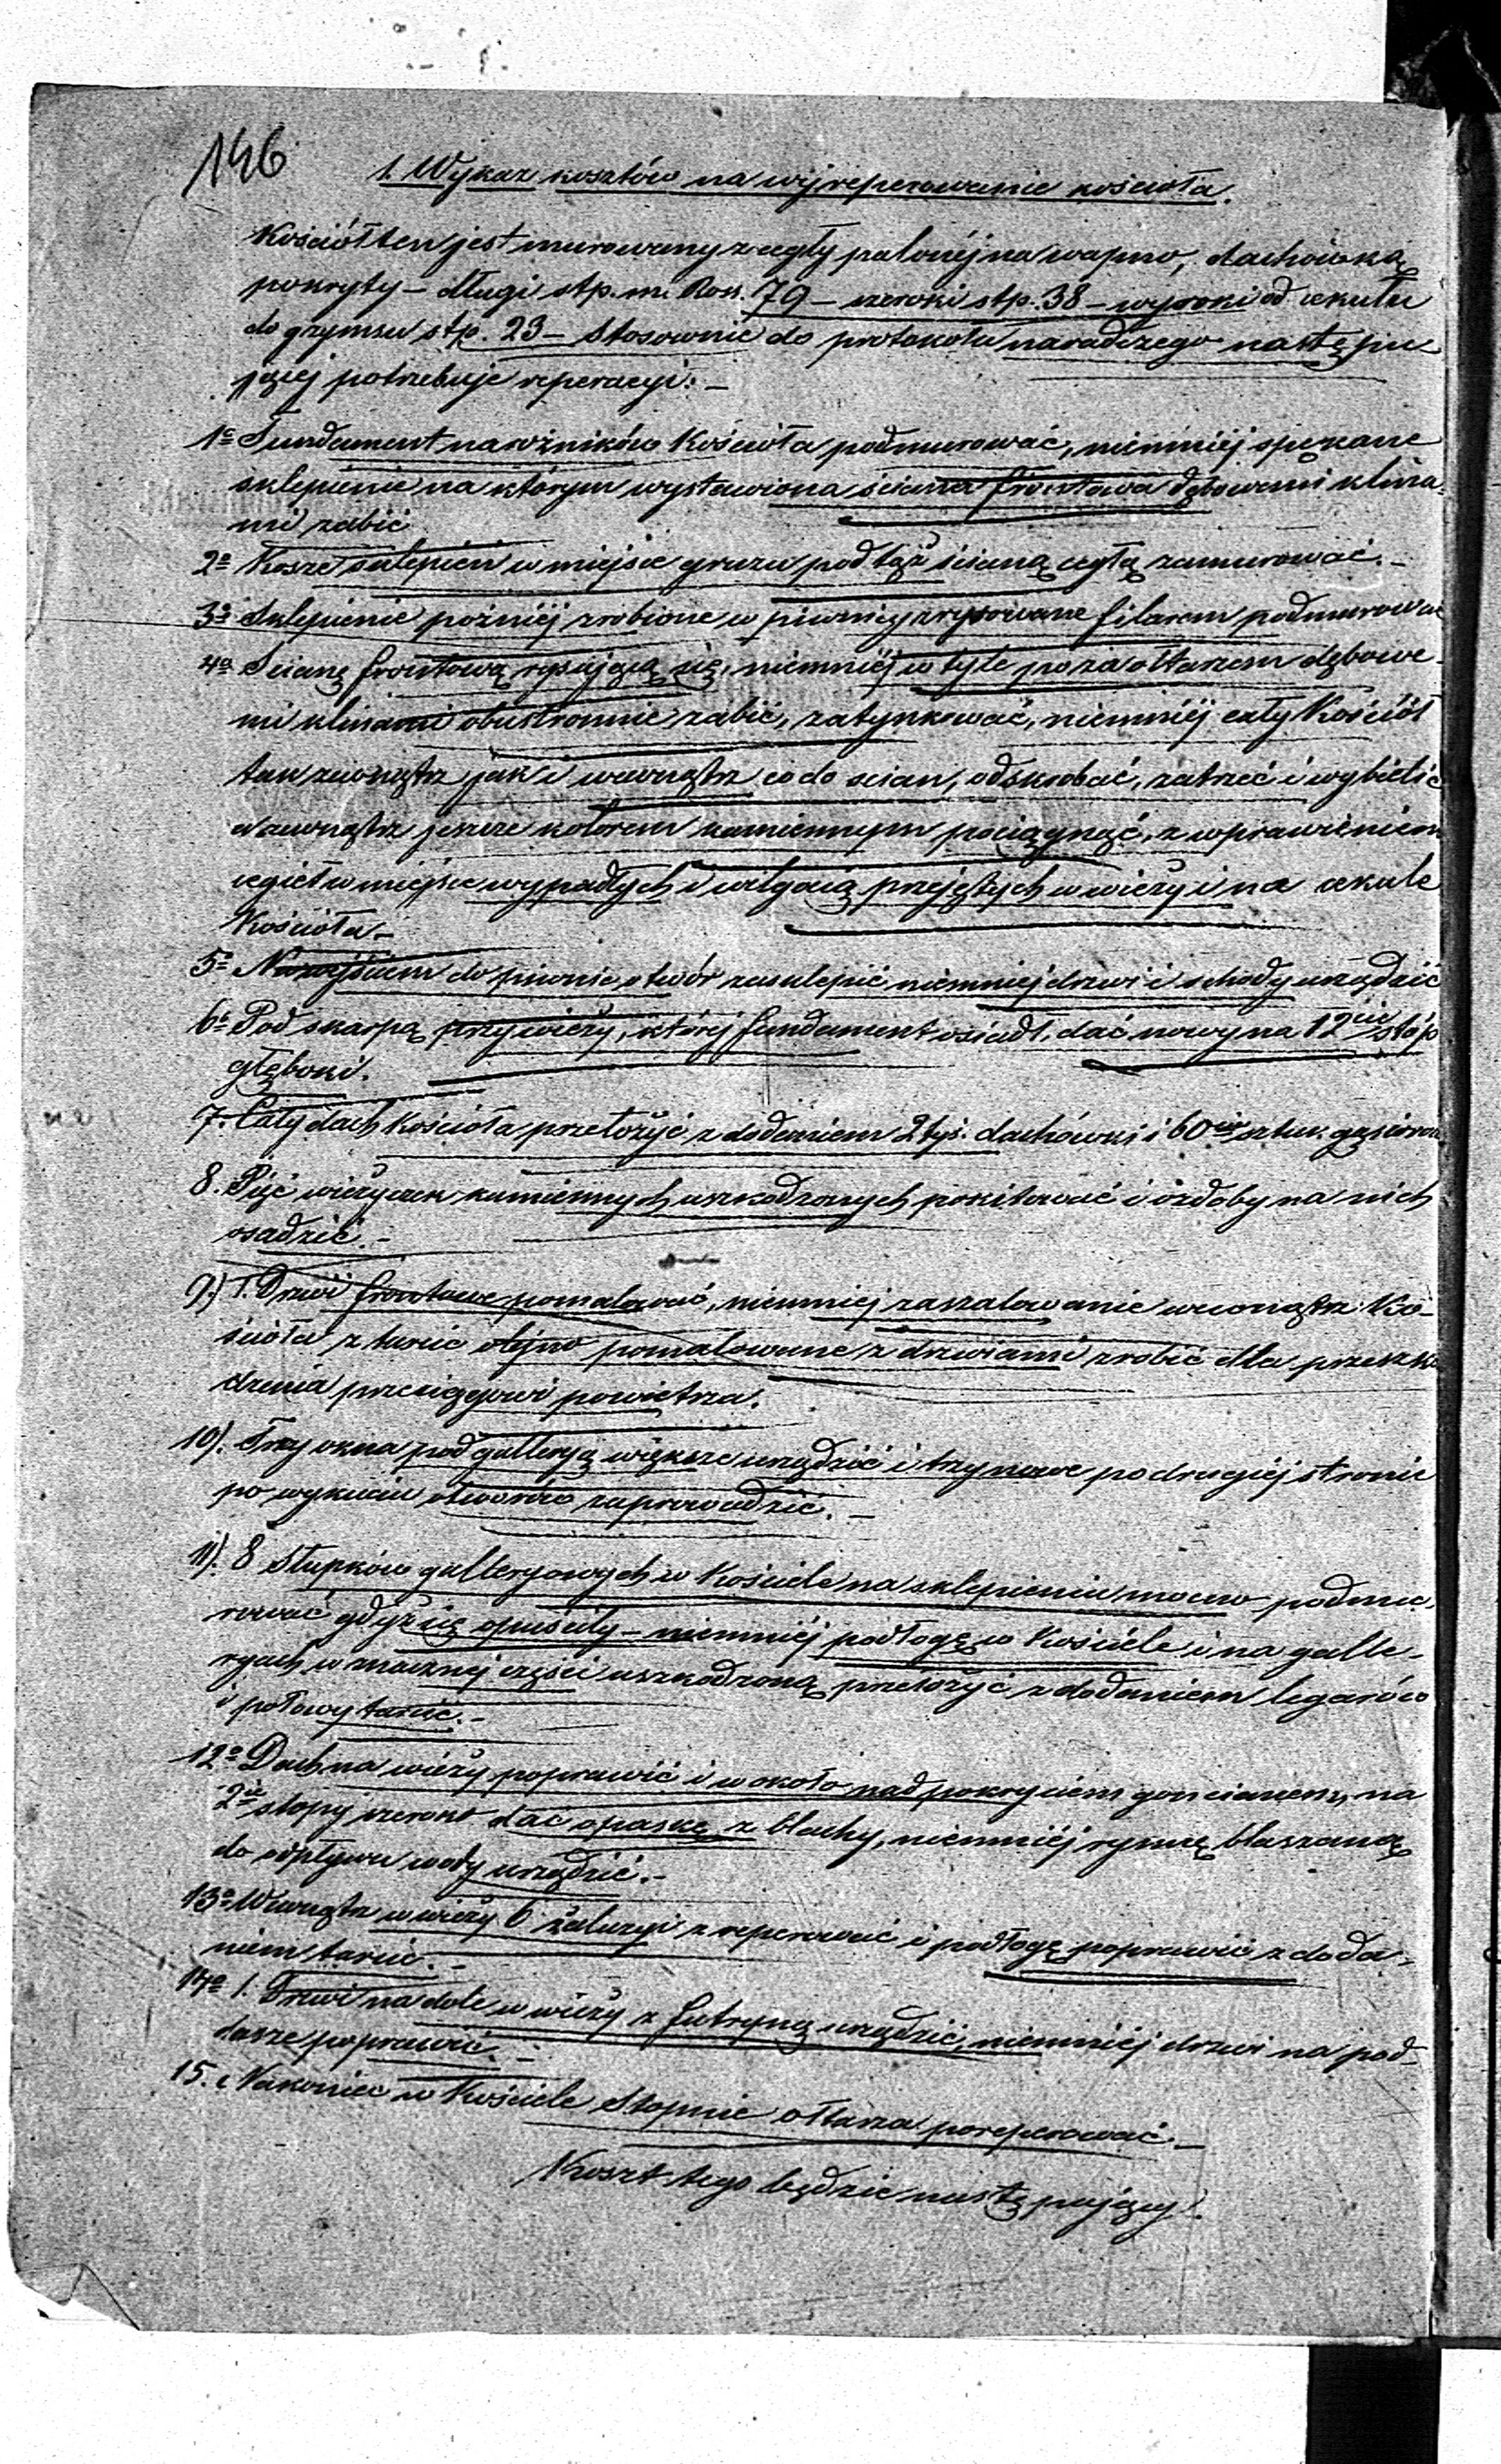 146
1. Wykaz kosztów na wyreperowanie kościoła.
Kościół ten jest murowany z cegły palonéj na wapno, dachówką
pokryty – długi stp. m. Ross. 79 – szeroki stp. 38 – wysoki od cekułu
do gzymsu stp. 23 – Stosownie do protokołu naradczego następu-
jącej potrzebuje reperacyi: –
1o Fundament narożników Kościoła podmurować, niemniéj spękane
sklepienie na którym wystawiona ściana frontowa dębowemi klina-
mi zabić
2o Kosze sklepień w miejsce gruzu pod tąż ścianą cegłą zamurować. –
3o Sklepienie poźniéj zrobione w piwnicy zrysowane filarem podmurować
4o Scianę frontową rysującą się, niemniéj w tyle poza ołtarzem dębowe-
mi klinami obustronnie zabić, zatynkować, niemniéj cały Kościół
tak zewnątrz jak i wewnątrz co do scian, odskrobać, zatrzeć i wybielić
a zewnątrz jeszcze kolorem kamiennym pociągnąć, z wprawieniem
cegieł w miejsce wypadłych i wilgocią przejętych w wieży i na cekule
Kościoła –
5o Nad wejściem do piwnic otwór zasklepić niemniej drzwi i schody urządzić
6o Pod skarpą przy wieży, któréj fundament osiadł, dać nowy na 12cie stóp
głęboki.
7. Cały dach Kościoła przełożyć z dodaniem 2 tyś. dachówki i 60iu sztuk gąsiorów
8. Pięć wieżyczek kamiennych uszkodzonych pokitować i ozdoby na nich
osadzić. –
9.) 1. Drzwi frontowe pomalować, niemniej zaszalowanie wewnątrz Ko-
ścioła z tarcic olejno pomalowane z drzwiami zrobić dla przeszko
dzenia przeciągowi powietrza.
10). Trzy okna pod galleryą większe urządzić i trzy nowe po drugiéj stronie
po wykuciu otworów zaprowadzić. –
11). 8 Słupków galleryowych w Kościele na sklepieniu mocno podmu-
rować gdyż się opuściły – niemniéj podłogę w Kościele i na galle-
ryach w znacznej części uszkodzoną przełożyć z dodaniem legarów
i połowy tarcic. –
12o Dach na wieży poprawić i w około nad pokryciem goncianem, na
2ie stopy szeroko dać opaskę z blachy, niemniéj rynnę blaszaną
do odpływu wody urządzić. –
13o Wewnątrz w wieży 6 żaluzyi zreperować i podłogę poprawić z doda-
niem tarcic. –
14o 1. Drzwi na dole w wieży z futryną urządzić, niemniéj drzwi na pod-
dasze poprawić. –
15. Nakoniec w Kościele Stopnie ołtarza poreperować. –
Koszt tego będzie następujący: